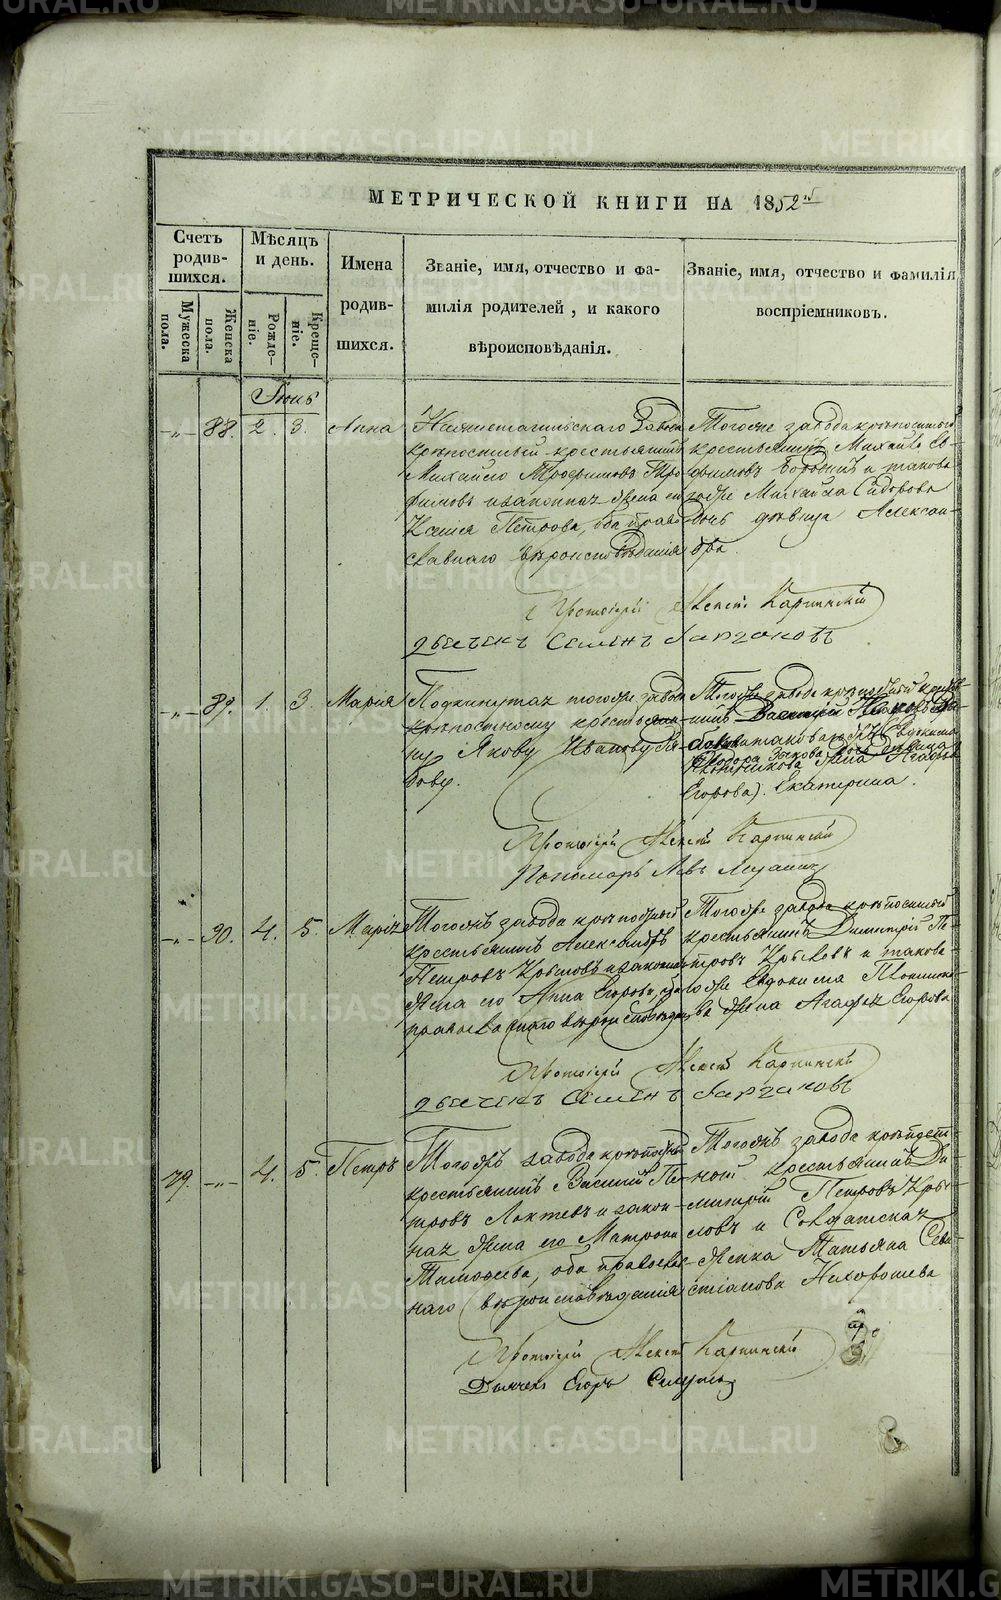 METRIKI.GASO-URAL.RU
МЕТРИЧЕСКОЙ КНИГИ НА 1852й
Счетъ родив-шихся.
Мужеска пола.
Женска пола.
Мѣсяцъ и день.
Рожде-ніе.
Креще-ніе.
Имена
родив-
шихся.
Званіе, имя, отчество и фа-
милія родителей, и какого
вѣроисповѣданія.
Званіе, имя, отчество и фамилія
воспріемниковъ.
Іюнь
88. 2. 3. Анна
Нижнетагильскаго завода
крѣпостный крестьянинъ
Михайло Трофимовъ Тро-
фимовъ и законная жена его
Ксенія Петрова, оба право-
славнаго вѣроисповѣданія
Тогоже завода крѣпостный
крестьянинъ Михайло
и такова-
гоже Михайла Сидорова
дочь дѣвица Алексан-
дра.
Протоіерей Карпинскій
дьячекъ Семенъ
89. 1. 3. Марія
Подкинутая тогоже завода
крѣпостному крестьяни-
ну Якову Иванову
Тогоже завода крѣпостный
Василій
Егорова). Екатерина.
Протоіерей Карпинскій
Пономарь Левъ
90. 4. 5. Марія
Тогожъ завода крѣпостный
крестьянинъ Александръ
Петровъ Крыловъ и законная
жена его Анна Егорова, оба
православнаго вѣроисповѣданія
Тогоже завода крѣпостный
крестьянинъ Димитрій Пе-
тровъ Крыловъ и такова-
гоже Евдокима
жена Агафья Егорова
Протоіерей Карпинскій
дьячекъ Семенъ
79. 4. 5. Петръ
Тогожъ завода крѣпостный
крестьянинъ Василій Пе-
тровъ Локтевъ и закон-
ная жена его Матрона
Тимофеева, оба православ-
наго вѣроисповѣданія
Тогожъ завода крѣпост-
ной крестьянинъ Ди-
митрій Петровъ Кры-
ловъ и Солдатская
женка Татьяна Севи-
стіанова Нехорошева
Протоіерей Карпинскій
Дьячекъ Егоръ